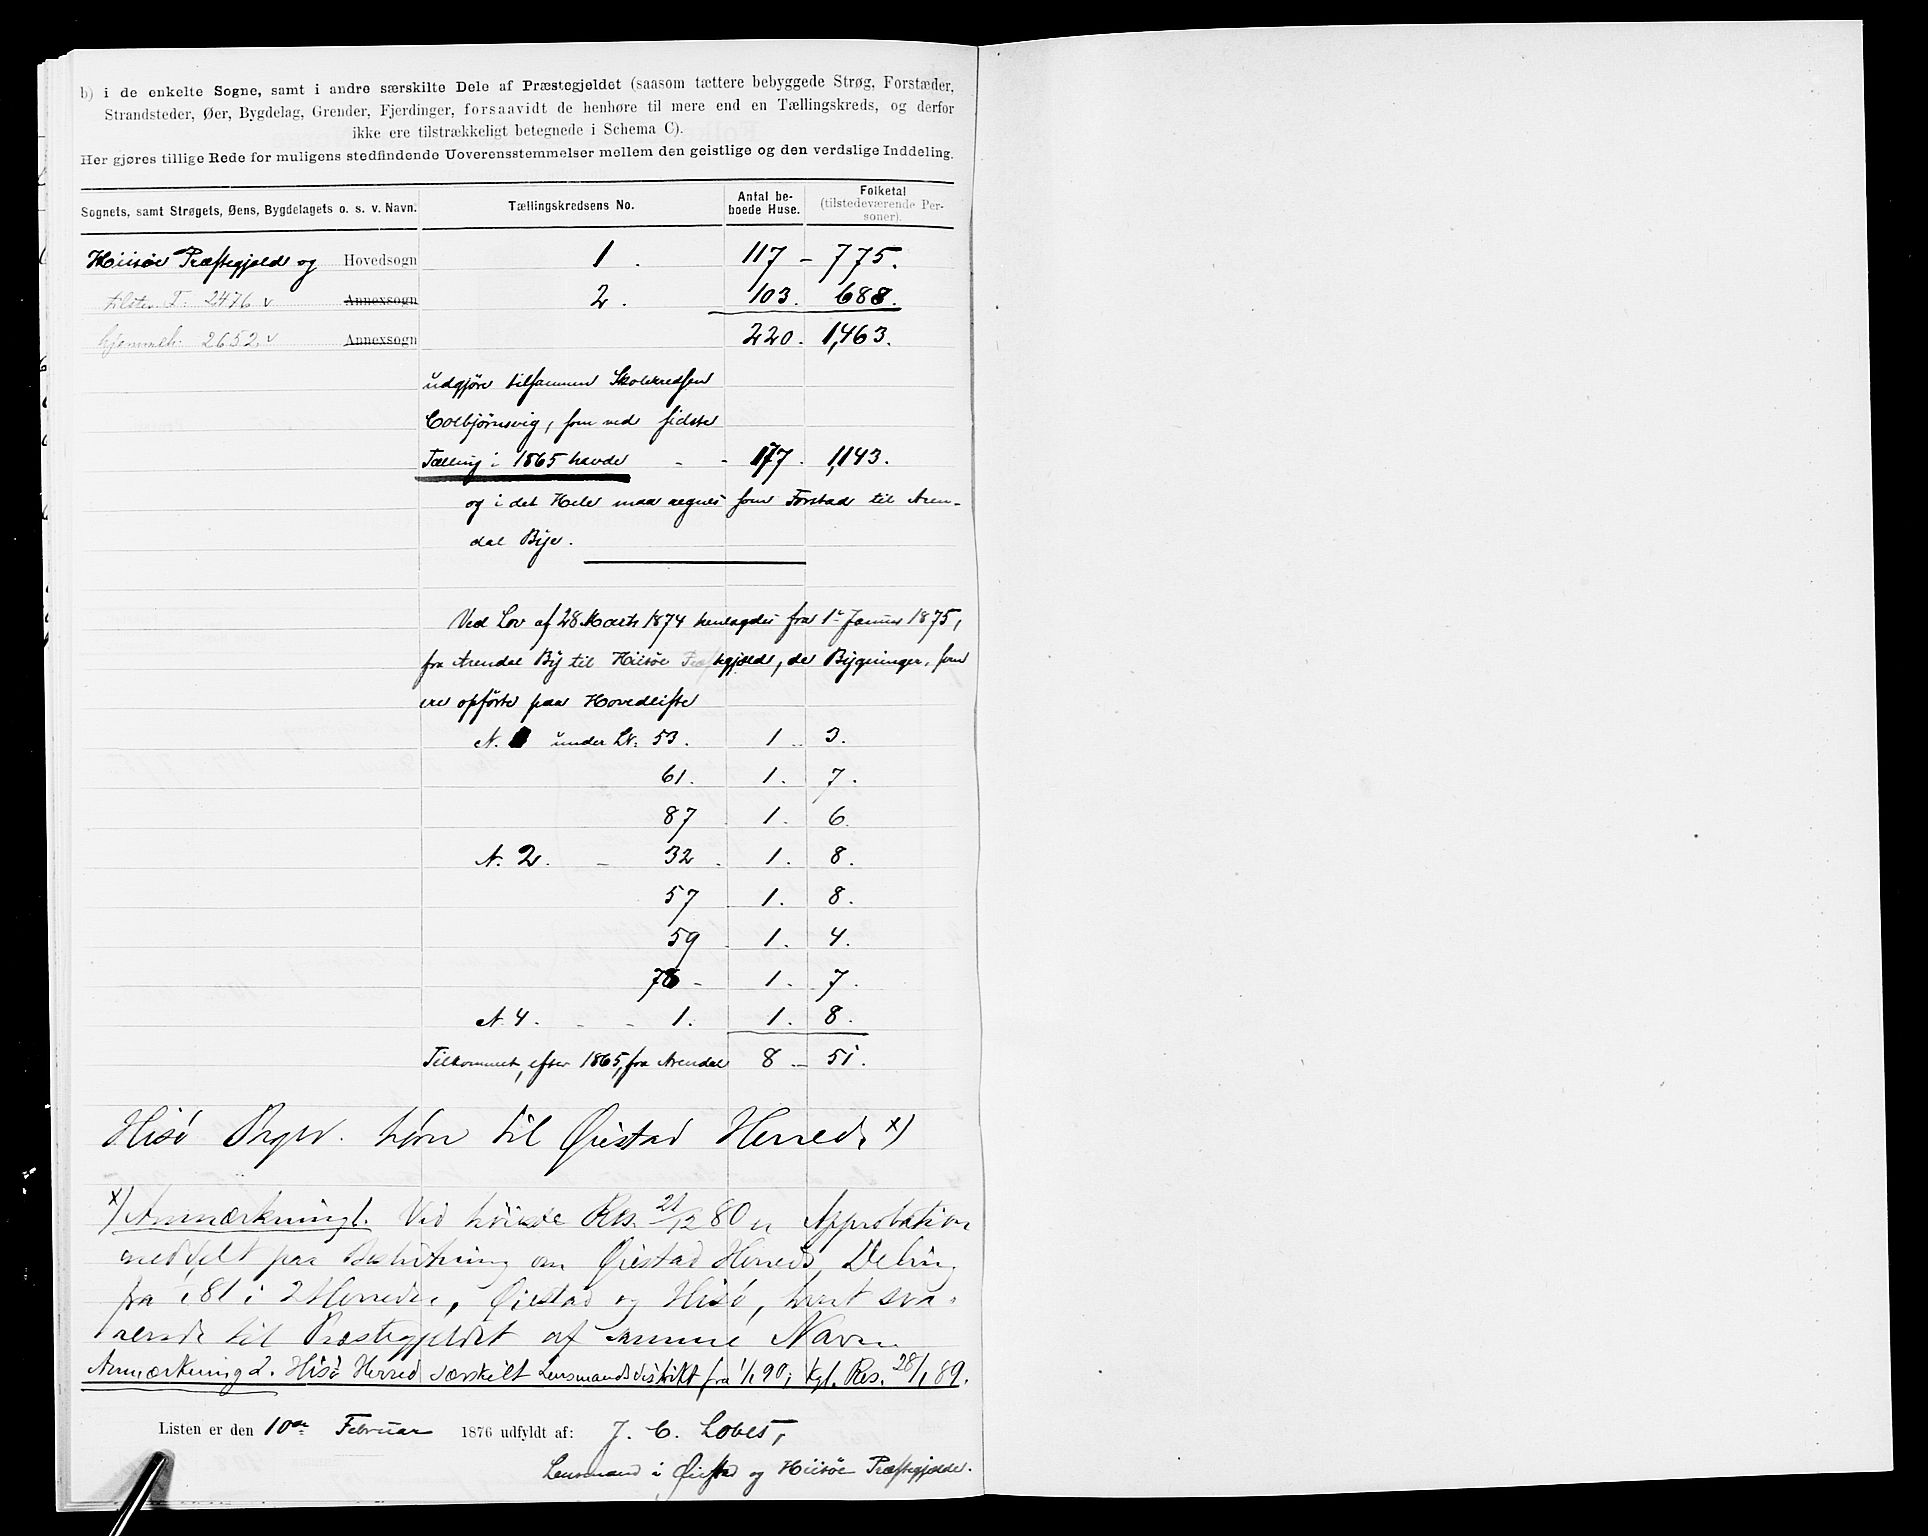 b) i de enkelte Sogne, samt i andre særskilte Dele af Præstegjeldet (saasom tættere bebyggede Strøg, Forstæder,
Strandsteder, Øer, Bygdelag, Grender, Fjerdinger, forsaavidt de henhøre til mere end en Tællingskreds, og derfor
ikke ere tilstrækkeligt betegnede i Schema C).
Her gjøres tillige Rede for muligens stedfindende Uoverensstemmelser mellem den geistlige og den verdslige Inddeling.
Sognets, samt Strøgets, Øens, Bygdelagets o. s. v. Navn. Tællingskredsens No. Antal be-boede Huse. Folketal (tilstedeværende Per-soner).
Hiisøe Præstegjeld og Hovedsogn 1. 117 - 775.
tilstev. F. 2476 v Annexsogn 2. 103. 688.
hjemmeh. 2652 v Annexsogn 220. 1,463.
udgjøre tilsammen Skolekredsen
Colbjørnsvig, som ved sidste
Tælling i 1865 havde - - 177. 1,143.
og i det Hele maa regnes som Forstad til Aren-
dal By.
Ved Lov af 28 Marts 1874 henlagdes fra 1ste Januar 1875,
fra Arendal By til Hiisøe Præstegjeld, de Bygninger, som
ere opførte paa Hovedliste
N. 1 under LN. 53. 1 - 3.
61. 1. 7.
87 1. 6.
N. 2. - 32. 1. 8.
57 1. 8.
59 1. 4.
76 - 1. 7.
N. 4. - - 1. 1. 8.
Tilkommet, efter 1865, fra Arendal 8 - 51.
Hisø Prgld. hører til Øiestad Herred. x)
x) Anmærkning 1. Ved høieste Res. 21/12 80 er Approbation
meddelt paa Beslutning om Øiestad Herreds Deling
fra 1/1 81 i 2 Herreder, Øiestad og Hisø, hvert sva-
rende til Præstegjeldet af samme Navn.
Anmærkning 2. Hisø Herred særskilt Lensmandsdistrikt fra 1/1 90; kgl. Res. 28/1 89.
Listen er den 10de Februar 1876 udfyldt af: J. C.
Lensmand i Øiestad og Hiisøe Præstegjelde.